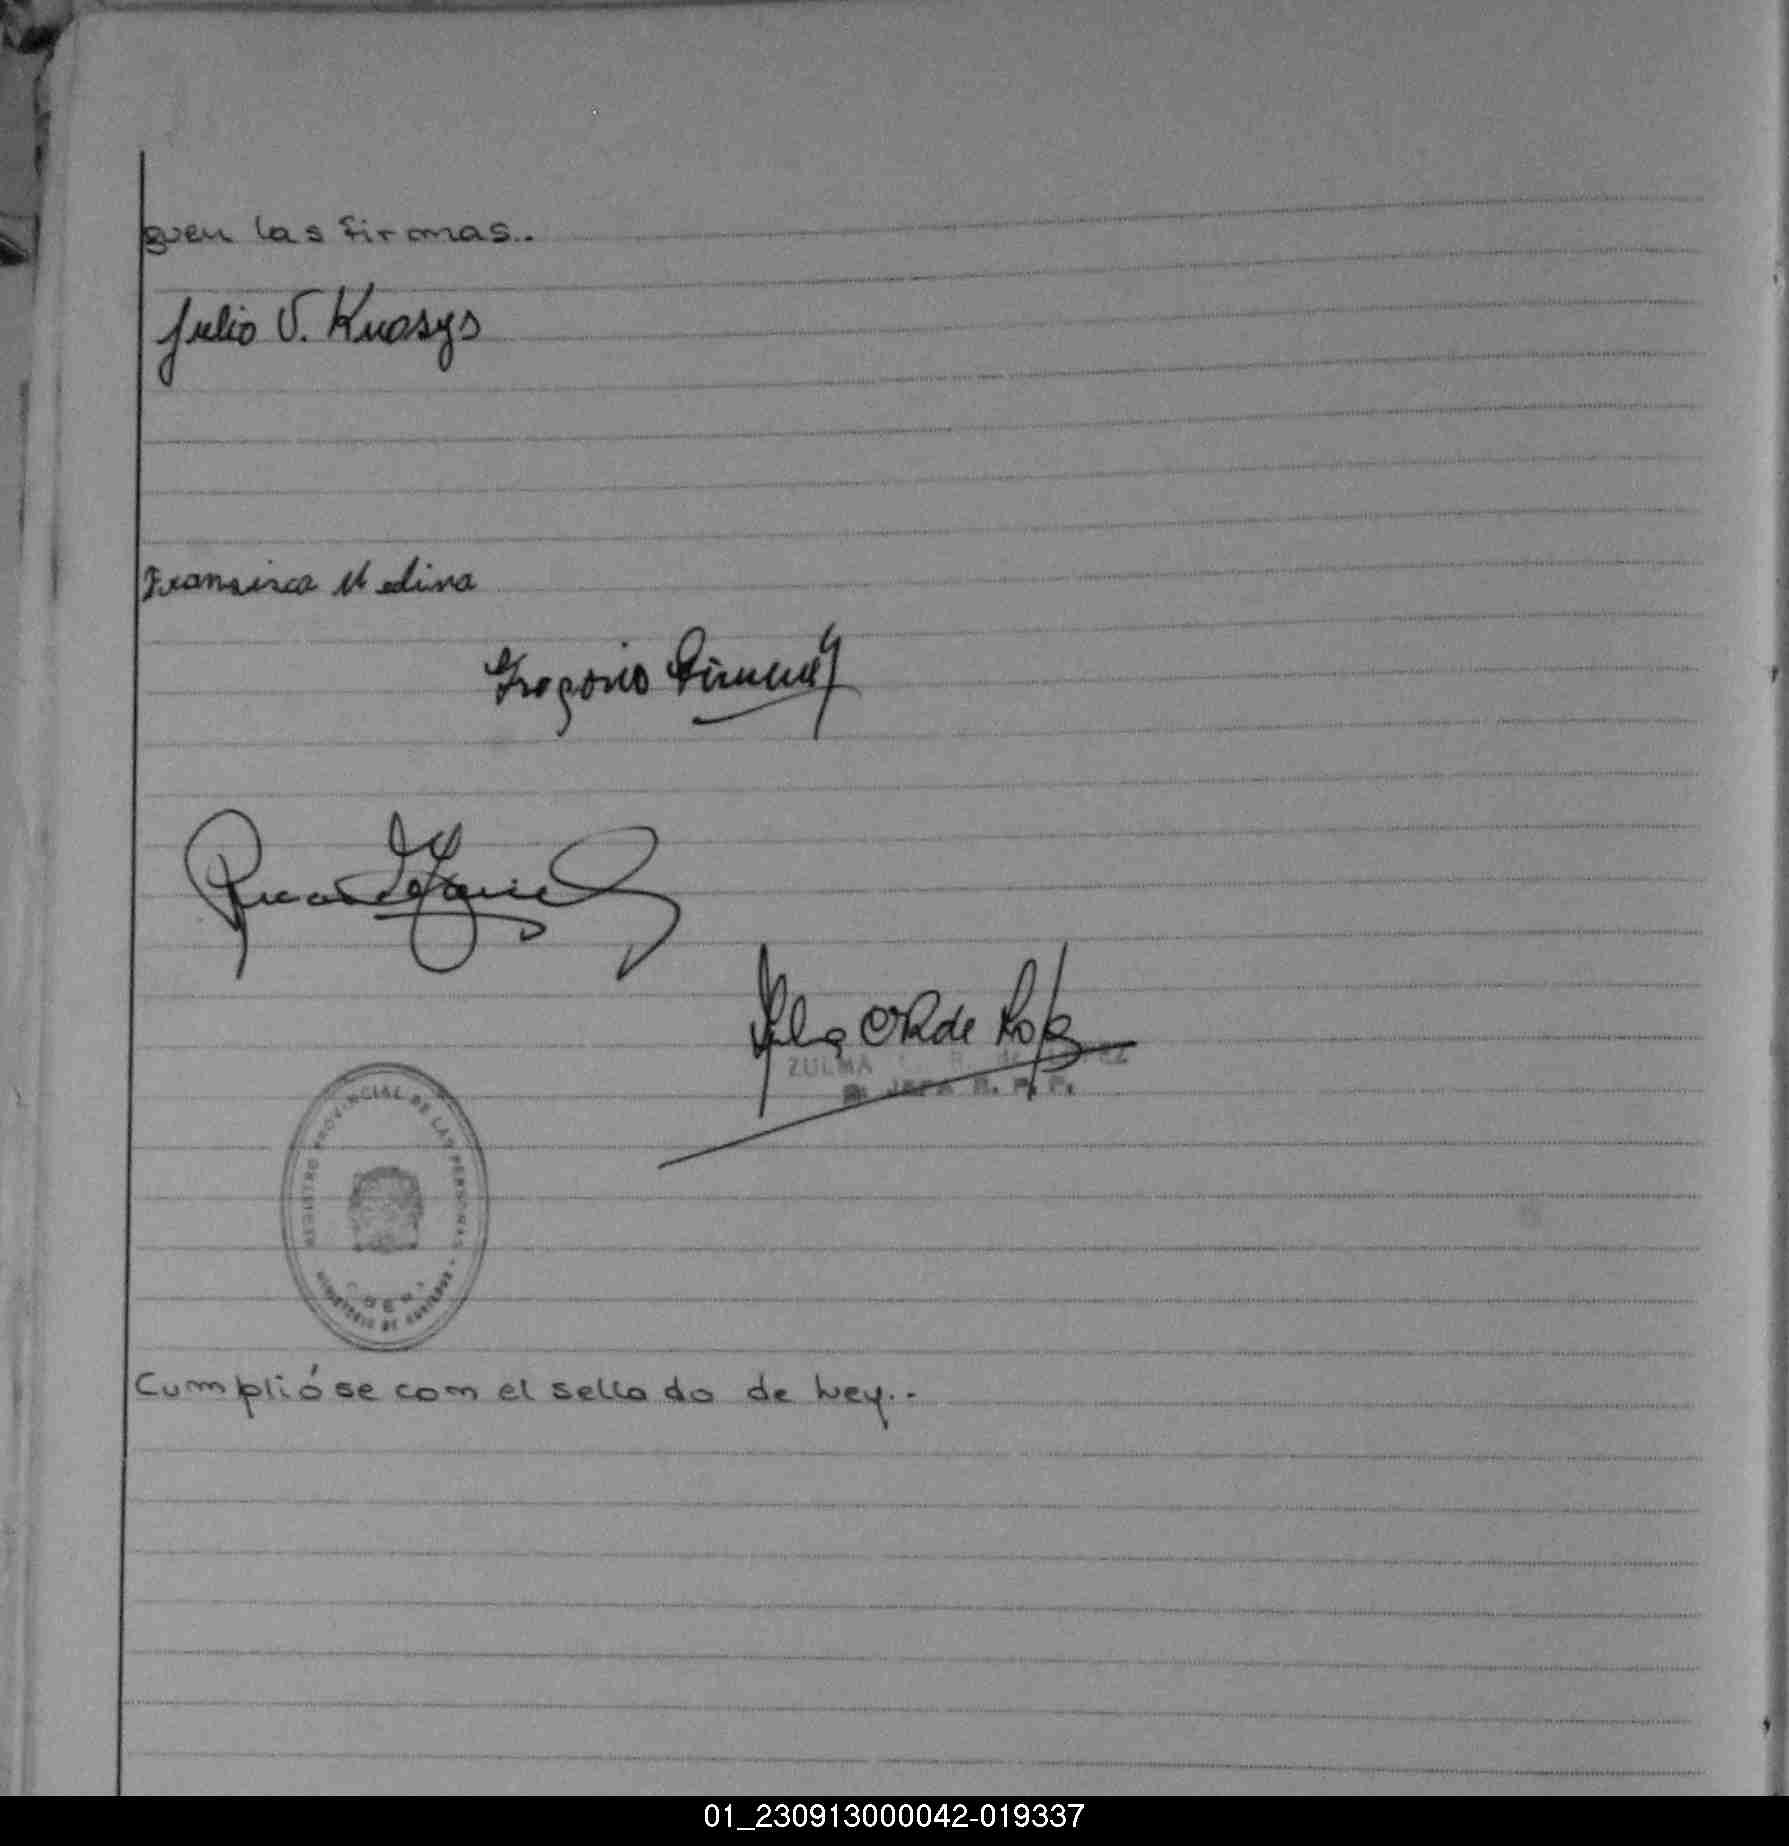 guen las firmas..
Julio V. Knasys
Francisca Medina
Gregorio Gimenez
ZULMA
JEFA R. P. P.
REGISTRO PROVINCIAL DE LAS PERSONAS
MINISTERIO DE GOBIERNO
Cumplióse con el sellado de Ley..
01_230913000042-019337